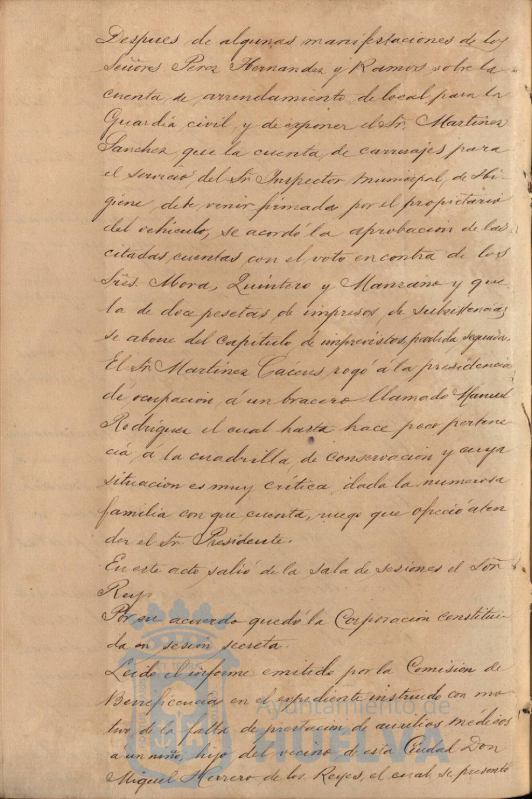 Despues de algunas manifestaciones de los
Señores Perez Hernandez y Ramos sobre la
cuenta de arrendamiento de local para la
Guardia civil y de exponer el Sr. Martinez
Sanchez que la cuenta de carruajes para
el servicio del Sr. Inspector Municipal de Hi-
giene, debe venir firmada por el propietario
del vehiculo, se acordó la aprobacion de las
citadas cuentas con el voto en contra de los
Sres. Mora, Quintero y Manzano y que
la de doce pesetas de impresos de subsistencias
se abone del capítulo de imprevistos partida segunda.
El Sr. Martinez Caceres rogó á la presidencia
dé ocupacion á un bracero llamado Manuel
Rodriguez el cual hasta hace poco pertene-
cia á la cuadrilla de conservacion y cuya
situacion es muy critica dada la numerosa
familia con que cuenta, ruego que ofreció aten
der el Sr. Presidente.
En este acto salió de la sala de sesiones el Señ
Rey.
Por su acuerdo quedó la Corporacion constitui-
da en sesion secreta.
Leido el informe emitido por la Comision de
Beneficencia en el expediente instruido con mo-
tivo de la falta de prestacion de auxilios médicos
a un niño, hijo del vecino de esta Ciudad Don
Miguel Herrero de los Reyes, el cual se presentó
Ayuntamiento de
HUELVA